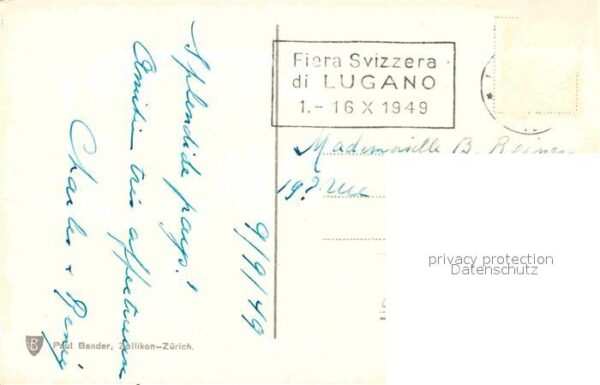 Splendide pays!
Amitiés très affectueuses
Charles &
9/9/49
Fiera Svizzera
di LUGANO
1.- 16 X 1949
Mademoiselle B.
19? rue
privacy protection
Datenschutz
B
Paul Bender, Zollikon-Zürich.